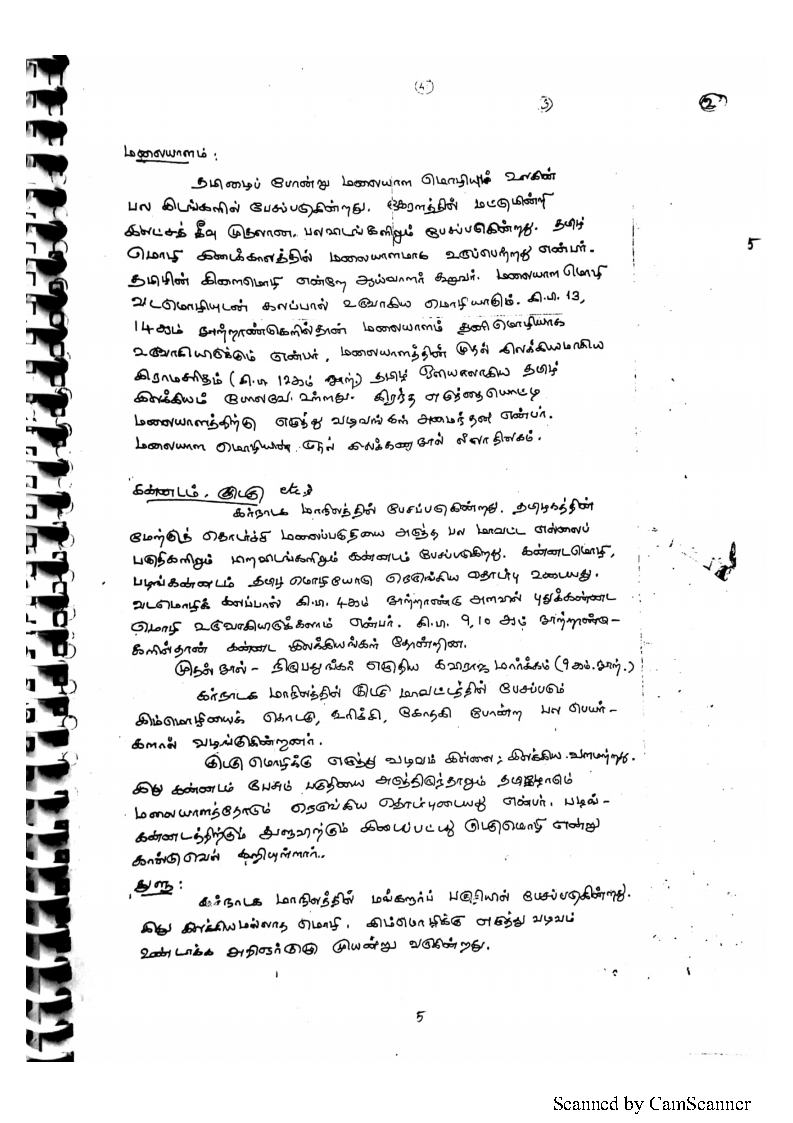 (4)
3)
2)
மலையாளம் :
தமிழைப் போன்று மலையாள மொழியும் உலகின்
பல இடங்களில் பேசப்படுகின்றது. கேரளத்தின் மட்டுமின்றி
இலட்சத் தீவு முதலான பலஇடங்களிலும் பேசப்படுகின்றது. தமிழ்
5
மொழி இடைக்காலத்தில் மலையாளமாக உருப்பெற்றது என்பர்.
தமிழின் கிளைமொழி என்றே ஆய்வாளர் கூறுவர். மலையாள மொழி
வடமொழியுடன் கலப்பால் உருவாகிய மொழியாகும். கி.பி. 13,
14ஆம் நூற்றாண்டுகளில்தான் மலையாளம் தனி மொழியாக
உருவாகியிருக்கும் என்பர், மலையாளத்தின் முதல் இலக்கியமாகிய
இராமசரிதம் (கி.பி 12ஆம் நூற்.) தமிழ் தமிழ்
இலக்கியம் போலவே உள்ளது. கிரந்த எழுத்தையொட்டி
மலையாளத்திற்கு எழுத்து வடிவங்கள் அமைந்தன என்பர்.
மலையாள மொழியின் முதல் இலக்கணநூல் லீலா திலகம்.
கன்னடம், குடகு etc
கர்நாடக மாநிலத்தில் பேசப்படுகின்றது. தமிழகத்தின்
மேற்குத் தொடர்ச்சி மலைப்பகுதியை அடுத்த பல மாவட்ட எல்லைப்
பகுதிகளிலும் பிறஇடங்களிலும் கன்னடம் பேசப்படுகிறது. கன்னடமொழி,
பழங்கன்னடம் தமிழ் மொழியோடு நெருங்கிய தொடர்பு உடையது.
வடமொழிக் கலப்பால் கி.பி. 4ஆம் நூற்றாண்டு அளவில் புதுக்கன்னட
மொழி உருவாகியிருக்கலாம் என்பர். கி.பி. 9,10 ஆம் நூற்றாண்டு-
களில்தான் கன்னட இலக்கியங்கள் தோன்றின.
முதல் நூல் - நிருபதுங்கர் எழுதிய கவிராஜ மார்க்கம் (9ஆம்.நூற்.)
கர்நாடக மாநிலத்தின் குடகு மாவட்டத்தில் பேசப்படும்
இம்மொழியைக் கொடகு, உரிக்கி, கோதகி போன்ற பல பெயர்-
களால் வழங்குகின்றனர்.
குடகு மொழிக்கு எழுத்து வடிவம் இல்லை; இலக்கிய வளமற்றது.
இது கன்னடம் பேசும் பகுதியை அடுத்திருந்தாலும் தமிழோடும்
மலையாளத்தோடும் நெருங்கிய தொடர்புடையது என்பர். பழங்-
கன்னடத்திற்கும் துளுவிற்கும் இடைப்பட்டது குடகுமொழி என்று
கால்டுவெல் கூறியுள்ளார்.
துளு :
கர்நாடக மாநிலத்தில் மங்களூர்ப் பகுதியில் பேசப்படுகின்றது.
இது இலக்கியமல்லாத மொழி. இம்மொழிக்கு எழுத்து வடிவம்
உண்டாக்க அறிஞர்குழு முயன்று வருகின்றது.
5
Scanned by CamScanner